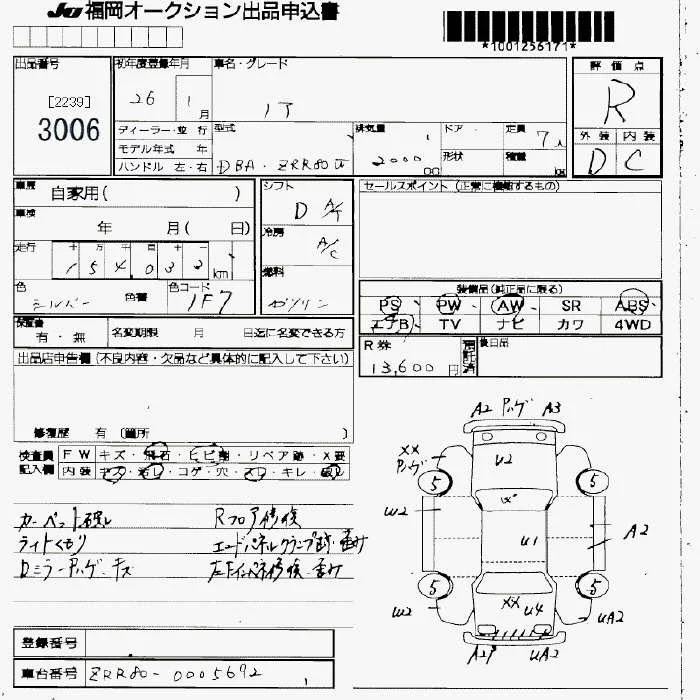 JU 福岡オークション出品申込書
*1001256171*
出品番号
[2239]
3006
初年度登録年月
26 1月
車名・グレード
ディーラー・並行
モデル年式 年
ハンドル 左・右
型式
DBA-ZRR80
排気量
2000 cc
ドア・
形状
定員 7人
積載 kg
評価点
R
外装 内装
D C
車歴 自家用( )
車検 年 月( 日)
走行 十 万 千 百 十 一
154,033 km
色 シルバー 色替
色コード 1F7
シフト D A/T
冷房 A/C
燃料 ガソリン
セールスポイント (正常に機能するもの)
装備品 (純正品に限る)
PS PW AW SR ABS
エアB TV ナビ カワ 4WD
保証書 有・無
名変期限 月 日迄に名変できる方
R券 13,600円 預託済
後日品
出品店申告欄 (不良内容・欠品など具体的に記入して下さい)
修復歴 有 〔箇所 〕
検査員記入欄
FW キズ・飛石・ヒビ割・リペア跡・X要
内装 キズ・汚レ・コゲ・穴・スレ・キレ・破レ
カーペット破レ Rフロア修復
ライトくもり エンドパネルクランプ跡・歪み
Dミラーアハゲ・キズ
A2 A3
XX U2
5 5
W2 U1 A2
5 5
W2 XX U4 UA2
UA2
登録番号
車台番号 ZRR80-0005692